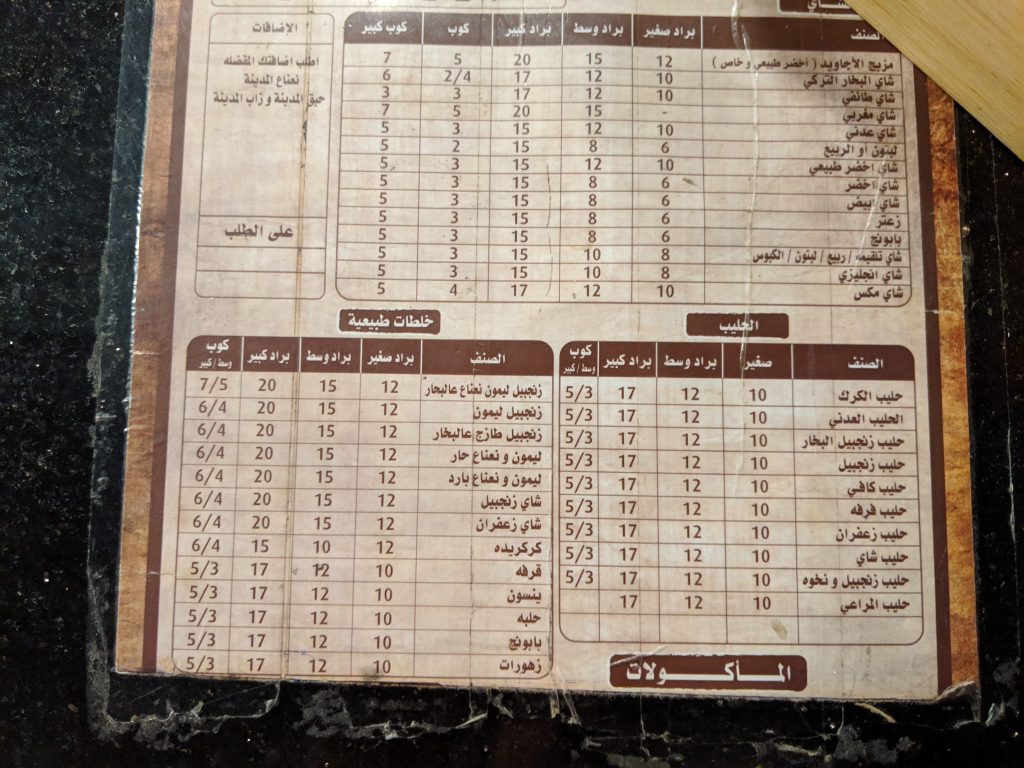 شاي
الصنف براد صغير براد وسط براد كبير كوب كوب كبير
مزيج الأجاويد ( أخضر طبيعي و خاص ) 12 15 20 5 7
شاي البخار التركي 10 12 17 2/4 6
شاي طائفي 10 12 17 3 3
شاي مغربي - 15 20 5 7
شاي عدني 10 12 15 3 5
لبتون أو الربيع 6 8 15 2 5
شاي اخضر طبيعي 10 12 15 3 5
شاي اخضر 6 8 15 3 5
شاي ابيض 6 8 15 3 5
زعتر 6 8 15 3 5
بابونج 6 8 15 3 5
شاي تلقيمه / ربيع / لبتون / الكبوس 8 10 15 3 5
شاي انجليزي 8 10 15 3 5
شاي مكس 10 12 17 4 5
الإضافات
اطلب اضافتك المفضله
نعناع المدينة
حبق المدينة و زاب المدينة
على الطلب
الحليب
الصنف صغير براد وسط براد كبير كوب وسط / كبير
حليب الكرك 10 12 17 5/3
الحليب العدني 10 12 17 5/3
حليب زنجبيل البخار 10 12 17 5/3
حليب زنجبيل 10 12 17 5/3
حليب كافي 10 12 17 5/3
حليب قرفه 10 12 17 5/3
حليب زعفران 10 12 17 5/3
حليب شاي 10 12 17 5/3
حليب زنجبيل و نخوه 10 12 17 5/3
حليب المراعي 10 12 17
خلطات طبيعية
الصنف براد صغير براد وسط براد كبير كوب وسط / كبير
زنجبيل ليمون نعناع عالبخار 12 15 20 7/5
زنجبيل ليمون 12 15 20 6/4
زنجبيل طازج عالبخار 12 15 20 6/4
ليمون و نعناع حار 12 15 20 6/4
ليمون و نعناع بارد 12 15 20 6/4
شاي زنجبيل 12 15 20 6/4
شاي زعفران 12 15 20 6/4
كركريده 12 10 15 6/4
قرفه 10 12 17 5/3
ينسون 10 12 17 5/3
حلبه 10 12 17 5/3
بابونج 10 12 17 5/3
زهورات 10 12 17 5/3
المـأكـــولات